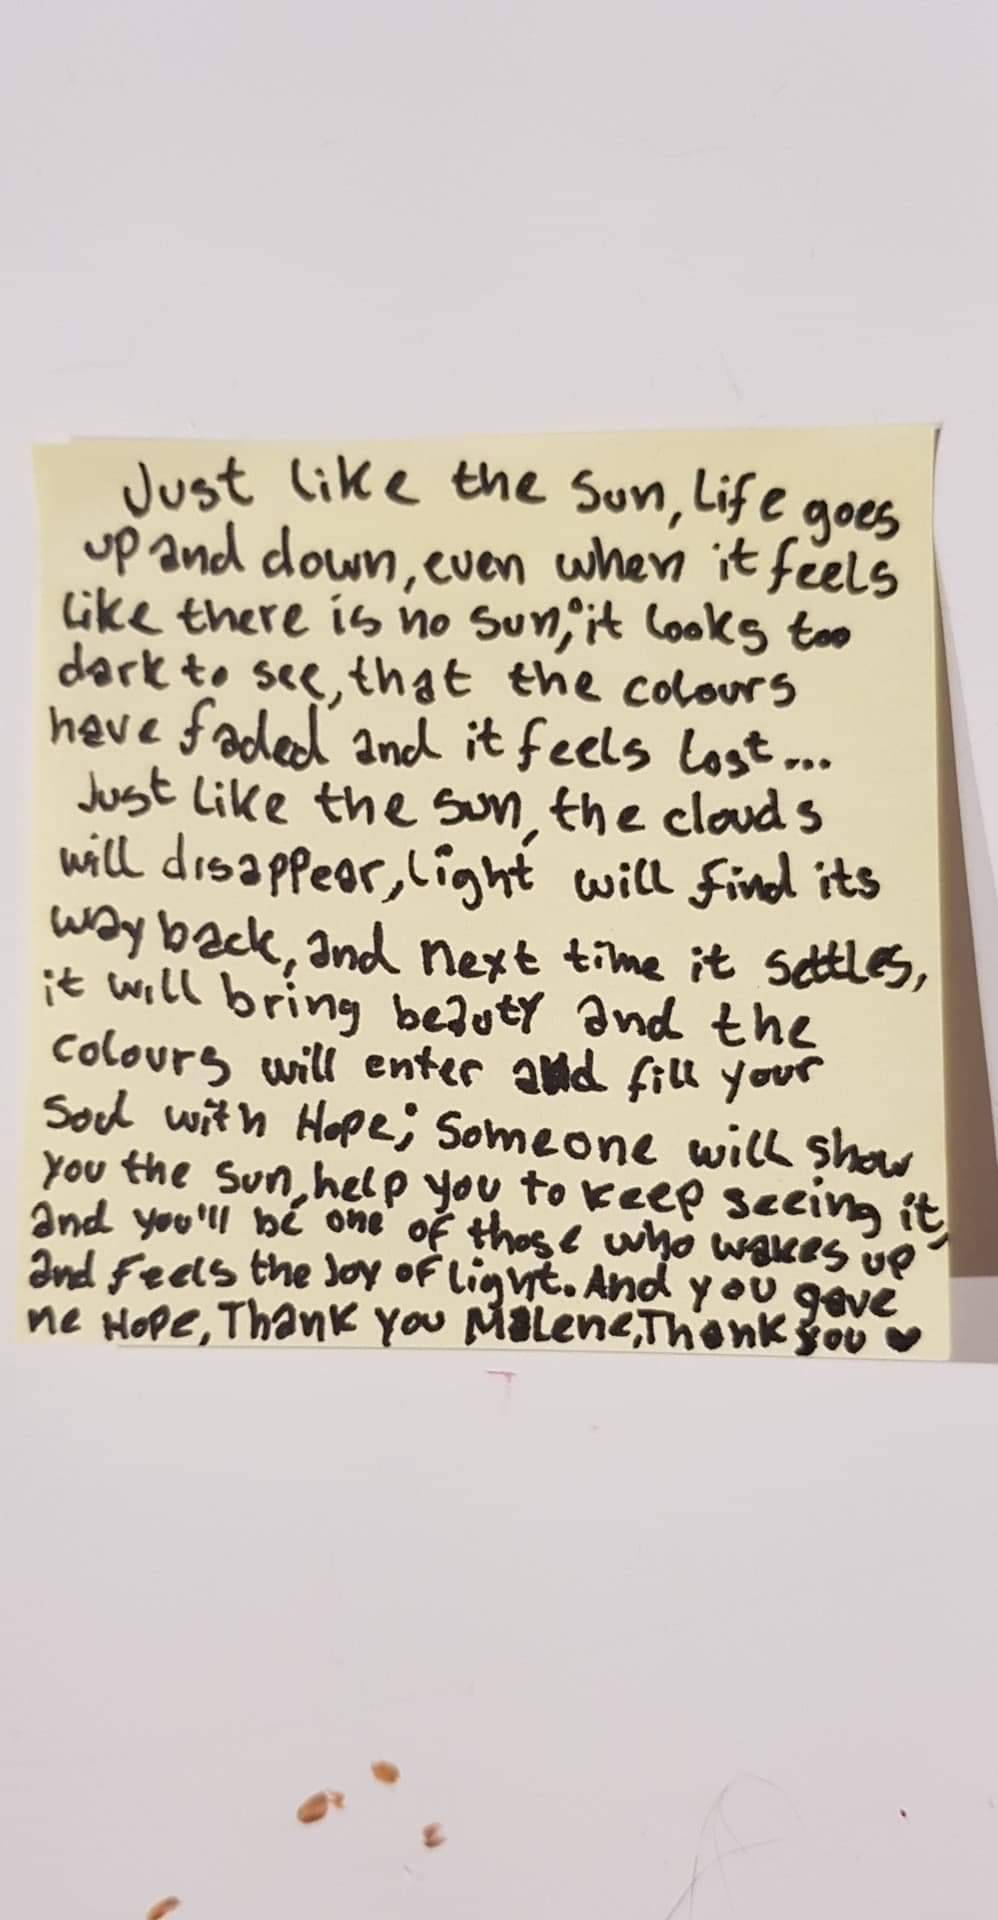 Just like the Sun, Life goes
up and down, even when it feels
like there is no sun, it looks too
dark to see, that the colours
have faded and it feels lost...
Just like the sun, the clouds
will disappear, light will find its
way back, and next time it settles,
it will bring beauty and the
colours will enter and fill your
Soul with Hope; Someone will show
you the sun, help you to keep seeing it,
and you'll be one of those who wakes up
and feels the Joy of light. And you gave
me Hope, Thank you Malene, Thank you ♥